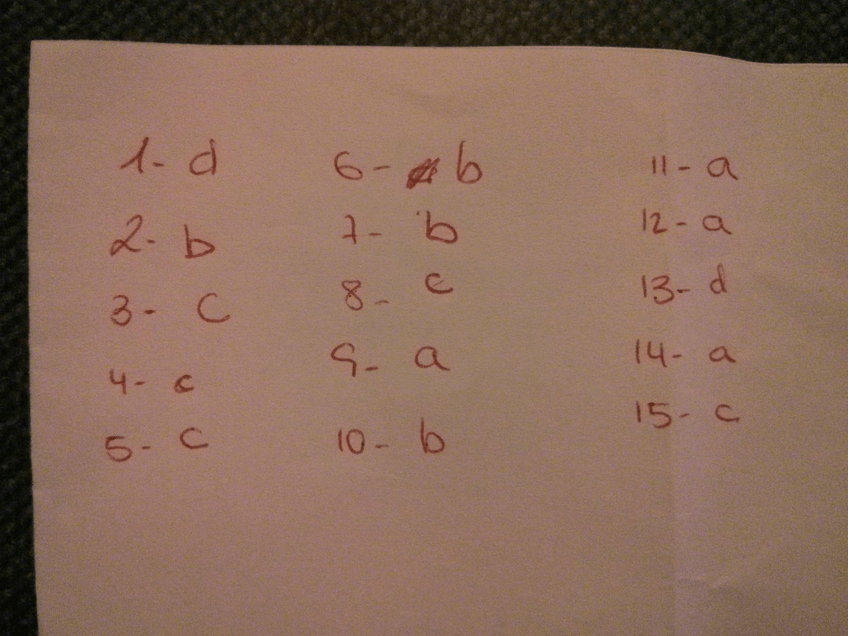 1- d
2- b
3- C
4- c
5- c
6- b
7- b
8- c
9- a
10- b
11- a
12- a
13- d
14- a
15- c